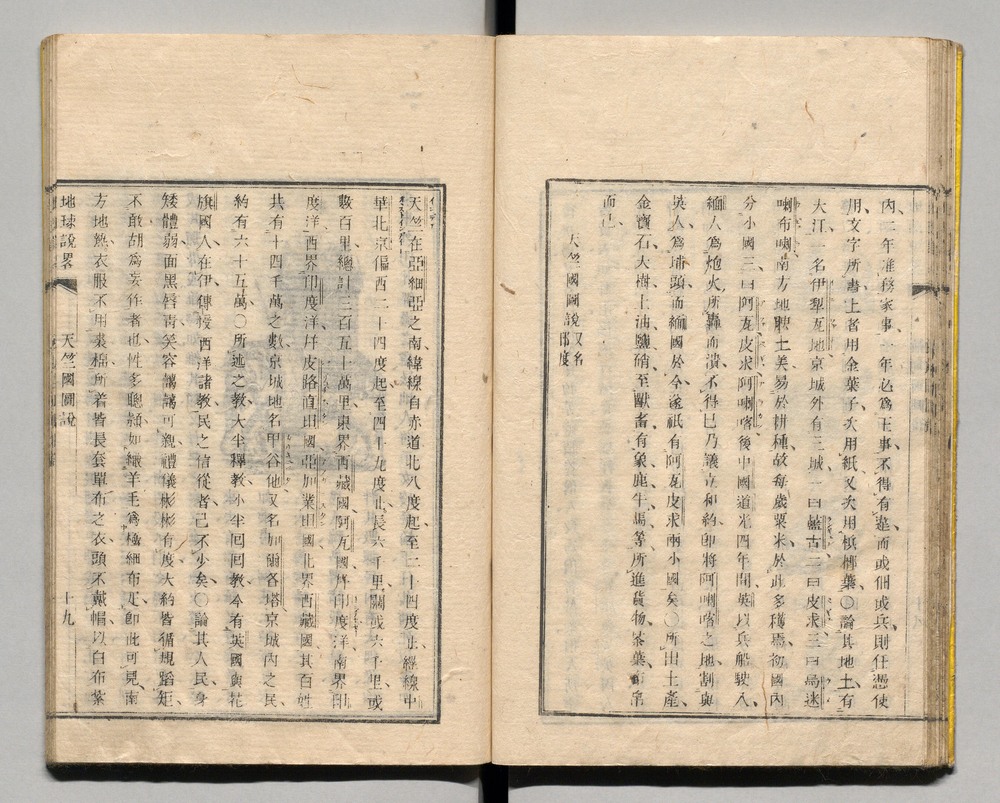 內二年准務家事一年必為王事不得有違而或佃或兵則任憑使
用文字所書上者用金葉子次用紙又次用檳榔葉〇論其地土有
大江一名伊犁瓦地京城外有三城一曰藍古二曰皮求三曰馬迷
喇布喇南方地腴土美易於耕種故每歲粟米於此多穫焉初國內
分小國三曰阿瓦皮求阿喇喀後中國道光四年間英以兵船駛入
緬人為炮火所轟而潰不得已乃議立和約即將阿喇喀之地割與
英人為埔頭而緬國於今遂祇有阿瓦皮求兩小國矣〇所出土產
金寶石大樹土油鹽硝至獸畜有象鹿牛馬等所進貨物茶葉布帛
而已
天竺國圖說又名印度
天竺在亞細亞之南緯線自赤道北八度起至二十四度止經線中
華北京偏西二十四度起至四十九度止長六千里闊或六千里或
數百里總計三百五十萬里東界西藏國阿瓦國與印度洋南界印
度洋西界印度洋皮路直坦國亞加業坦國北界西藏國其百姓
共有十四千萬之數京城地名甲谷他又名加爾各塔京城內之民
約有六十五萬〇所述之教大半釋教小半回回教今有英國與花
旗國人在伊傳授西洋諸教民之信從者已不少矣〇論其人民身
矮體弱面黑唇青笑容藹藹可親禮儀彬彬有度大約皆循規蹈矩
不敢胡為妄作者也性多聰穎如織羊毛為極細布疋即此可見南
方地熱衣服不用裘棉所着皆長套單布之衣頭不戴帽以白布紮
地球說畧 天竺國圖說 十九